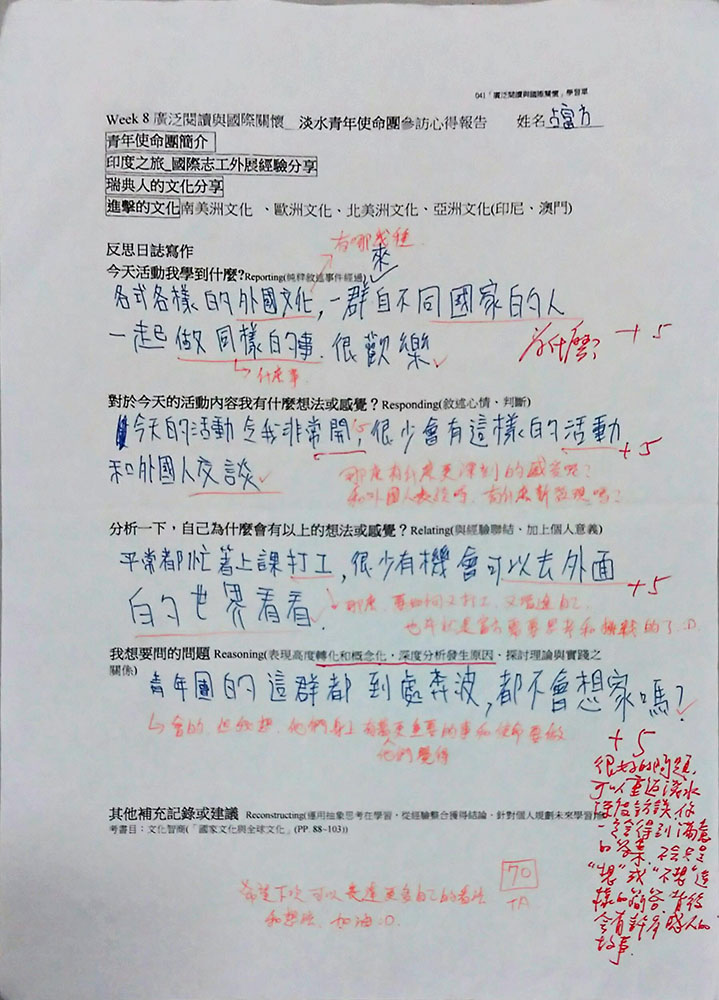 041「廣泛閱讀與國際關懷」學習單
Week 8 廣泛閱讀與國際關懷_ 淡水青年使命團參訪心得報告 姓名 占富方
青年使命團簡介
印度之旅_國際志工外展經驗分享
瑞典人的文化分享
進擊的文化南美洲文化 、歐洲文化、北美洲文化、亞洲文化(印尼、澳門)
反思日誌寫作
有哪幾種
今天活動我學到什麼?Reporting(純粹敘述事件經過)
來
各式各樣的外國文化,一群自不同國家的人
一起做同樣的事.很歡樂
為什麼?
+5
什麼事
對於今天的活動內容我有什麼想法或感覺?Responding(敘述心情、判斷)
今天的活動 令我非常開心,很少會有這樣的活動
+5
和外國人交談
那麼有什麼更深刻的感受呢?
和外國人交談時,有什麼新發現嗎?
分析一下,自己為什麼會有以上的想法或感覺?Relating(與經驗聯結、加上個人意義)
平常都忙著上課打工,很少有機會可以去外面
+5
的世界看看.
那麼,要如何又打工,又增進自己,
也許就是富方需要思考和挑戰的了:D
我想要問的問題 Reasoning(表現高度轉化和概念化,深度分析發生原因、探討理論與實踐之
關係)
青年團的這群都到處奔波,都不會想家嗎?
會的,但我想,他們身上有著更重要的事和使命要做
他們覺得
+5
很好的問題.
可以重返淡水
深度訪談,你
一定會得到滿意
的答案.不會只是
"想"或"不想"這
樣的簡答,背後
會有許多感人的
故事.
其他補充記錄或建議 Reconstructing(運用抽象思考在學習,從經驗整合獲得結論,針對個人規劃未來學習
考書目:文化智商(「國家文化與全球文化」(PP. 88~103))
70
TA
希望下次可以表達更多自己的看法
和想法,加油:D.